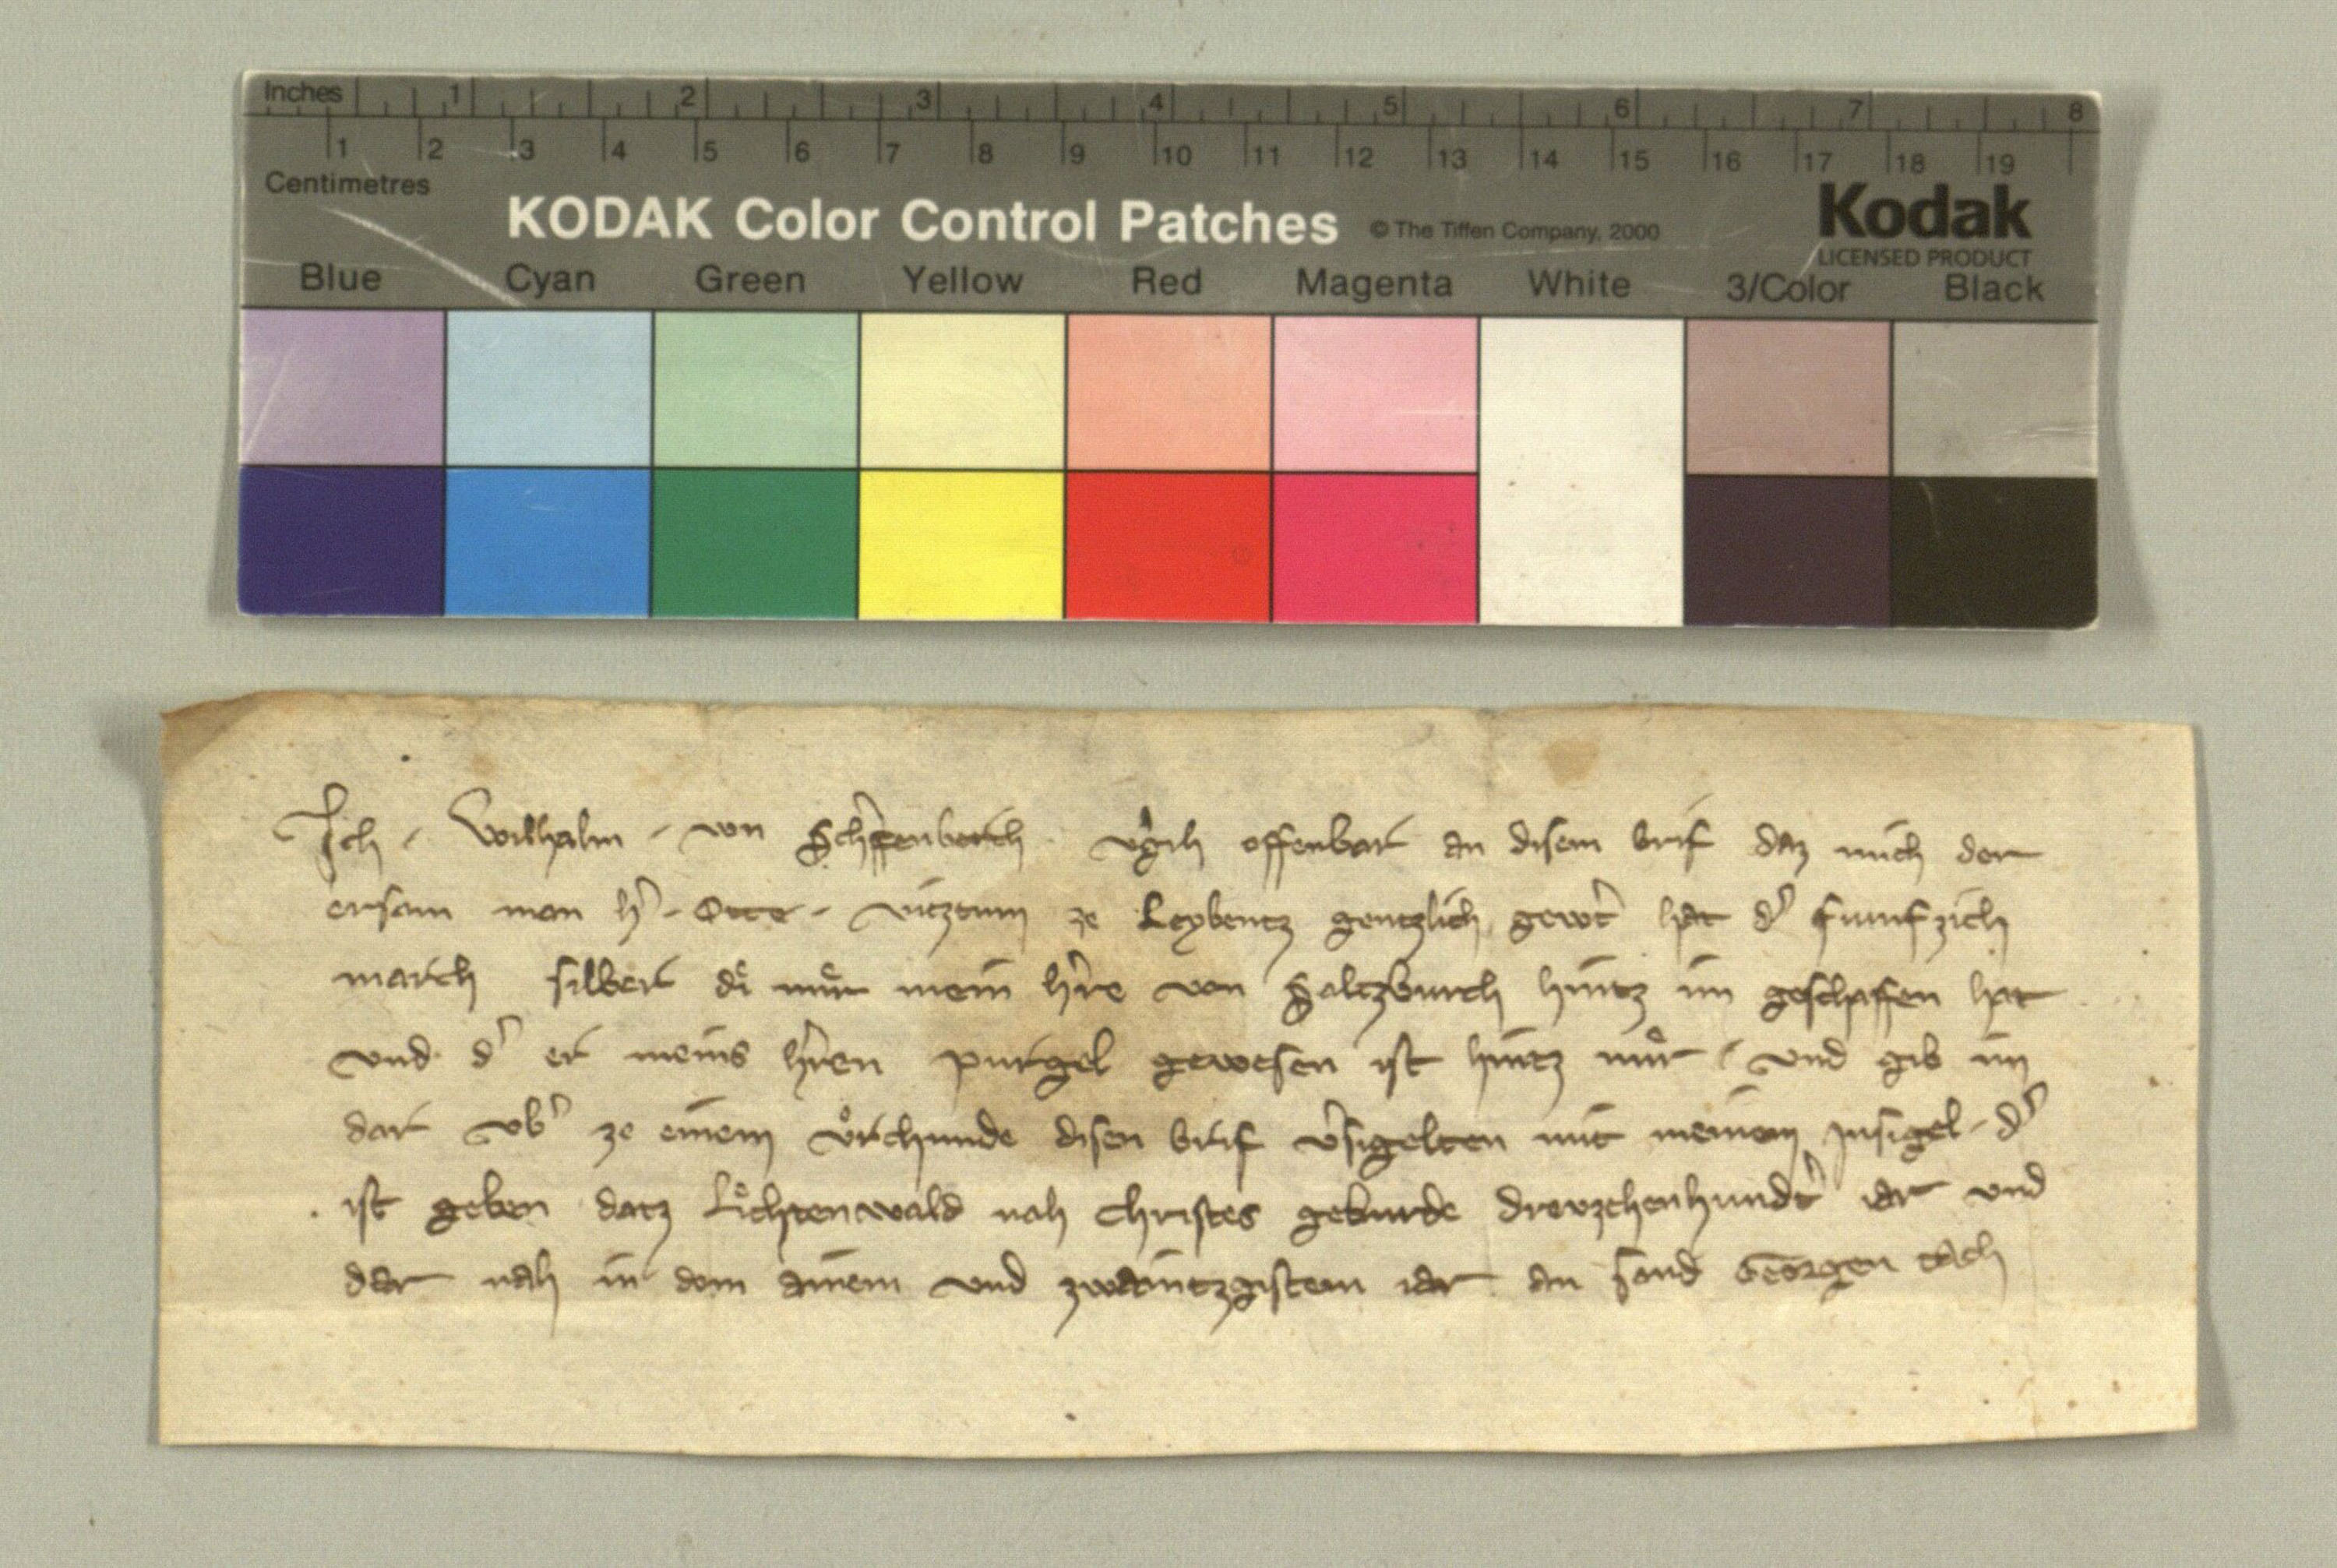 Inches 1 2 3 4 5 6 7 8
1 2 3 4 5 6 7 8 9 10 11 12 13 14 15 16 17 18 19
Centimetres
KODAK Color Control Patches © The Tiffen Company, 2000 Kodak
LICENSED PRODUCT
Blue Cyan Green Yellow Red Magenta White 3/Color Black
Ich Wilhalm von Scherfenberch v̓gih offenbar an disem brif daz mich der
ersam man h̓ Otte vitztum ze Leybentz gentzlich gewt̓ hat d̓ funfzich
march silber di mir mein h̓re von Saltzburch hintz im geschaffen hat
vnd d̓ er meins h̓ren purgel gewesen ist hintz mir vnd gib im
dar vb̓ ze einem vrchunde disen brif v̓sigelten mit meinem Insigel d̓
ist geben datz Liechtenwald nah Christes geburde Dreuzehenhundt̓ iar vnd
dar nah in dem ainem vnd zwaintzgistem iar an sand Georgen tach